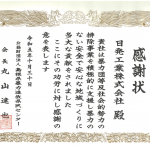 感謝状
日発工業株式会社 殿
貴社は暴力団等反社会的勢力の
排除事業を積極的に支援し暴力の
ない安全で安心な地域づくりに
多大な貢献をされました
よってその功労に対し感謝の
意を表します
令和五年十月三十日
公益財団法人 島根県暴力追放県民センター
会長 丸山達也